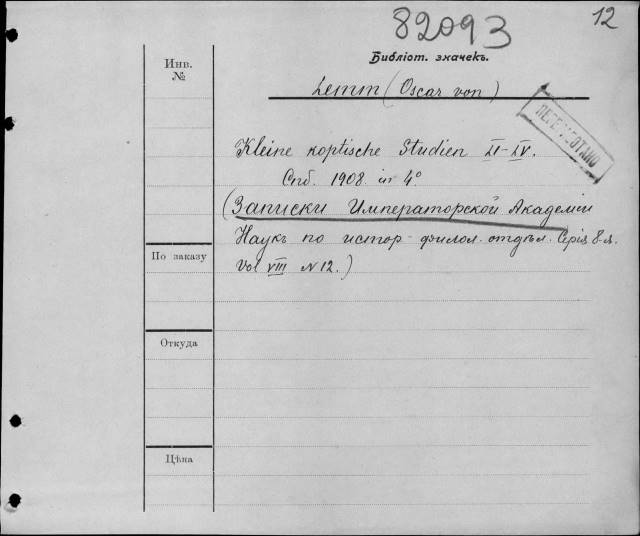 82093
12
Инв.
№
Библіот. значекъ.
Lemm (Oscar von)
ПЕРЕСЧИТАНО
Kleine koptische Studien LI-LV.
Спб. 1908. in 4°
(Записки Императорской Академіи
Наукъ по истор-филол. отдѣл. Серія 8-я.
Vol VIII N 12.)
По заказу
Откуда
Цѣна